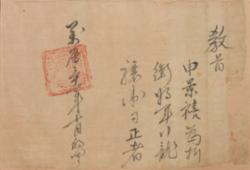 敎旨
申景禧爲折
衝將軍行龍
驤衛司正者
萬曆年十月